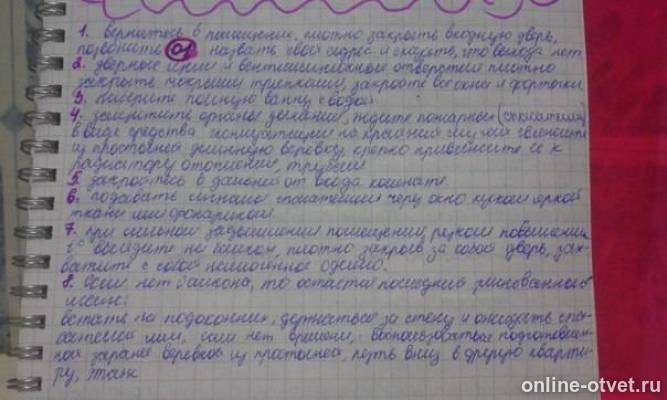 1. вернитесь в помещение, плотно закрыть входную дверь,
позвонить 01 назвать свой адрес и сказать, что выхода нет
2. дверные щели и вентиляционные отверстия плотно
закрыть мокрыми тряпками, закройте все окна и форточки
3. наберите полную ванну воды
4. защитите органы дыхания, ждите пожарных (спасателей)
в виде средства из
из простыней длинную веревку крепко привяжите ее к
радиатору отопления, трубам
5. закройтесь в дальней от входа комнате.
6. подавать сигналы спасателям через окно куском яркой
ткани или фонариком
7. при сильном задымлении помещения, резком повышении
t° выходите на балкон, плотно закрыв за собой дверь, зах-
ватите с собой одеяло.
8. если нет балкона, то остается последний
шанс:
встать на подоконник, держаться за стену и ожидать спа-
сателей или, если нет времени, воспользоваться подготовлен-
ной заранее веревкой из простыней, лезть вниз в другую кварти-
ру, этаж
online-otvet.ru